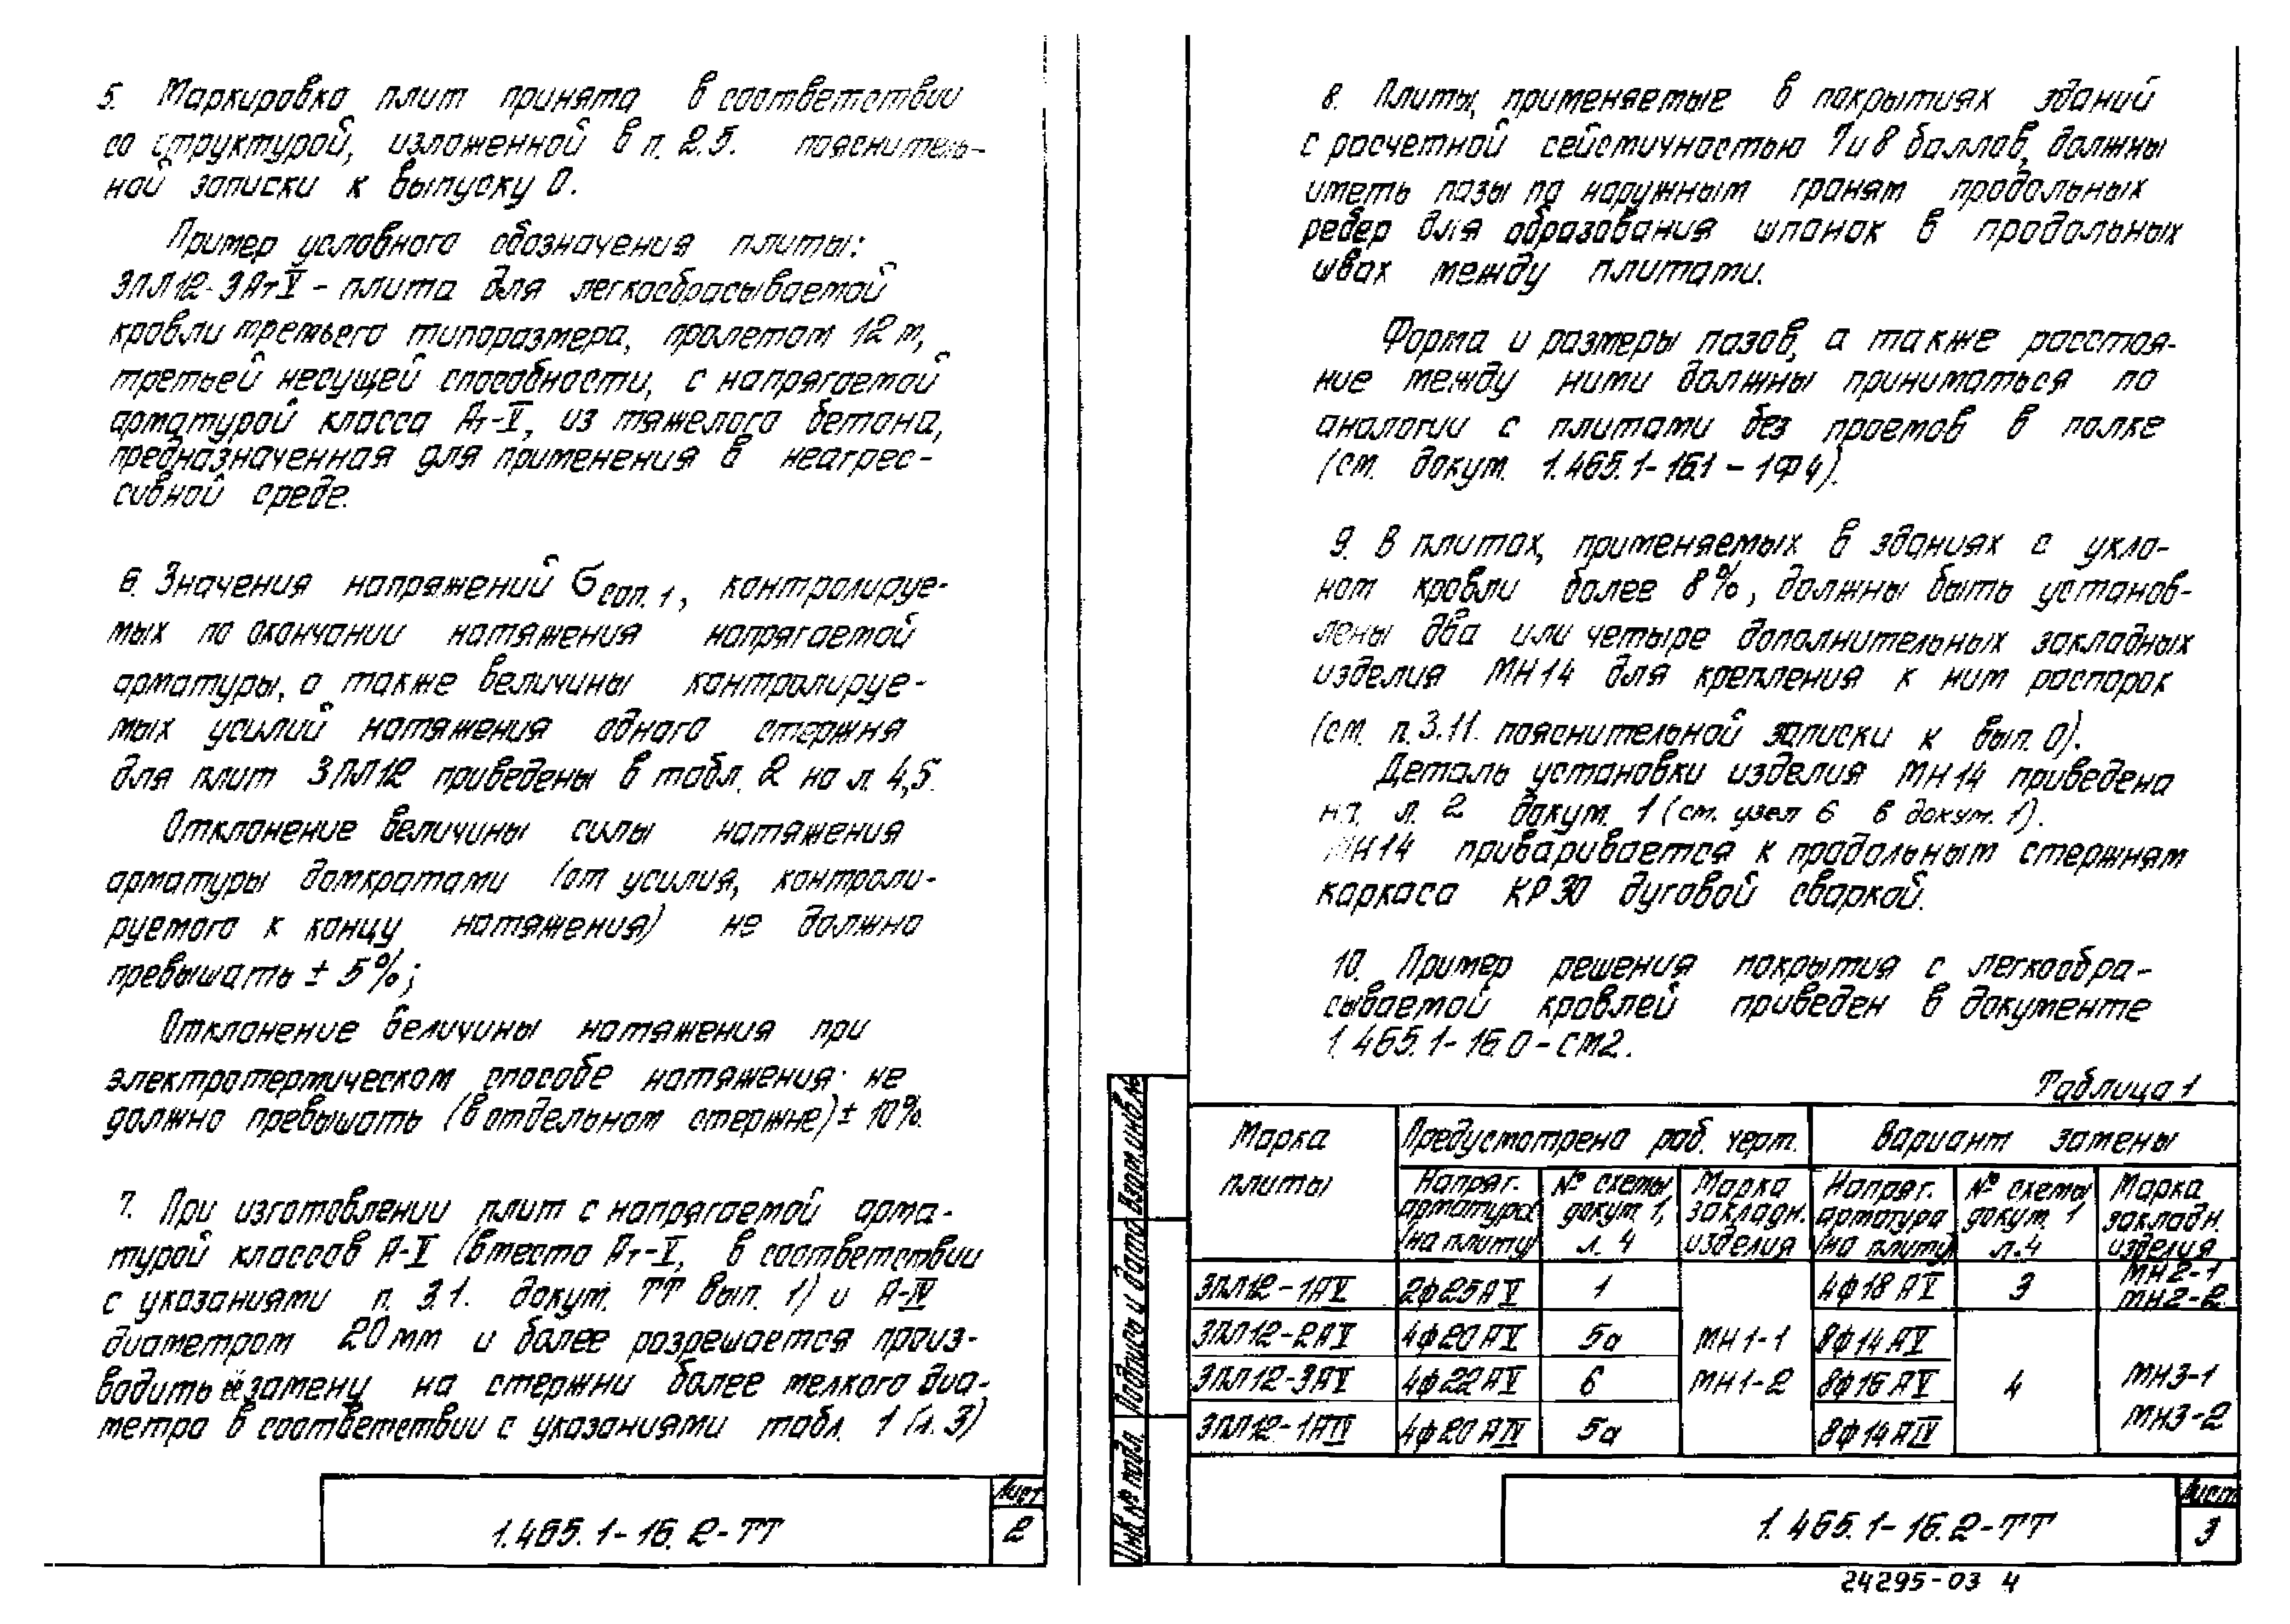 5. Маркировка плит принята в соответствии
со структурой, изложенной в п. 2.5. пояснитель-
ной записки к выпуску 0.
Пример условного обозначения плиты:
3ПЛ12-3АтV – плита для легкосбрасываемой
кровли третьего типоразмера, пролетом 12 м,
третьей несущей способности, с напрягаемой
арматурой класса Ат-V, из тяжелого бетона,
предназначенная для применения в неагрес-
сивной среде.
6. Значения напряжений σсоп.1, контролируе-
мых по окончании натяжения напрягаемой
арматуры, а также величины контролируе-
мых усилий натяжения одного стержня
для плит 3ПЛ12 приведены в табл. 2 на л. 4,5.
Отклонение величины силы натяжения
арматуры домкратами (от усилия, контроли-
руемого к концу натяжения) не должно
превышать ± 5%;
Отклонение величины натяжения при
электротермическом способе натяжения не
должно превышать (в отдельном стержне) ± 10%.
7. При изготовлении плит с напрягаемой арма-
турой классов А-V (вместо Ат-V, в соответствии
с указаниями п. 3.1. докум. ТТ вып. 1) и А-IV
диаметром 20 мм и более разрешается произ-
водить её замену на стержни более мелкого диа-
метра в соответствии с указаниями табл. 1 (л. 3)
1.465.1-16.2-ТТ
Лист
2
8. Плиты, применяемые в покрытиях зданий
с расчетной сейсмичностью 7 и 8 баллов, должны
иметь пазы по наружным граням продольных
ребер для образования шпонок в продольных
швах между плитами.
Форма и размеры пазов, а также расстоя-
ние между ними должны приниматься по
аналогии с плитами без проемов в полке
(см. докум. 1.465.1-16.1 – 1Ф4).
9. В плитах, применяемых в зданиях с укло-
ном кровли более 8%, должны быть установ-
лены два или четыре дополнительных закладных
изделия МН14 для крепления к ним распорок
(см. п.3.11. пояснительной записки к вып. 0).
Деталь установки изделия МН14 приведена
на л. 2 докум. 1 (см. узел 6 в докум. 1).
МН14 приваривается к продольным стержням
каркаса КР30 дуговой сваркой.
10. Пример решения покрытия с легкосбра-
сываемой кровлей приведен в документе
1.465.1-16.0-СМ2.
Таблица 1
Марка плиты | Предусмотрена раб. черт. | Вариант замены
Напряг. арматура (на плиту) | № схемы докум. 1, л. 4 | Марка закладн. изделия | Напряг. арматура (на плиту) | № схемы докум. 1 л.4 | Марка закладн. изделия
3ПЛ12-1АV | 2ф25АV | 1 | МН1-1 МН1-2 | 4ф18 АV | 3 | МН2-1 МН2-2
3ПЛ12-2АV | 4ф20 АV | 5а | 8ф14 АV | 4 | МН3-1 МН3-2
3ПЛ12-3АV | 4ф22 АV | 6 | 8ф16 АV
3ПЛ12-1АIV | 4ф20 АIV | 5а | 8ф14 АIV
Инв.№ подл.
Подпись и дата
Взам.инв.№
1.465.1-16.2-ТТ
Лист
3
24295-03 4